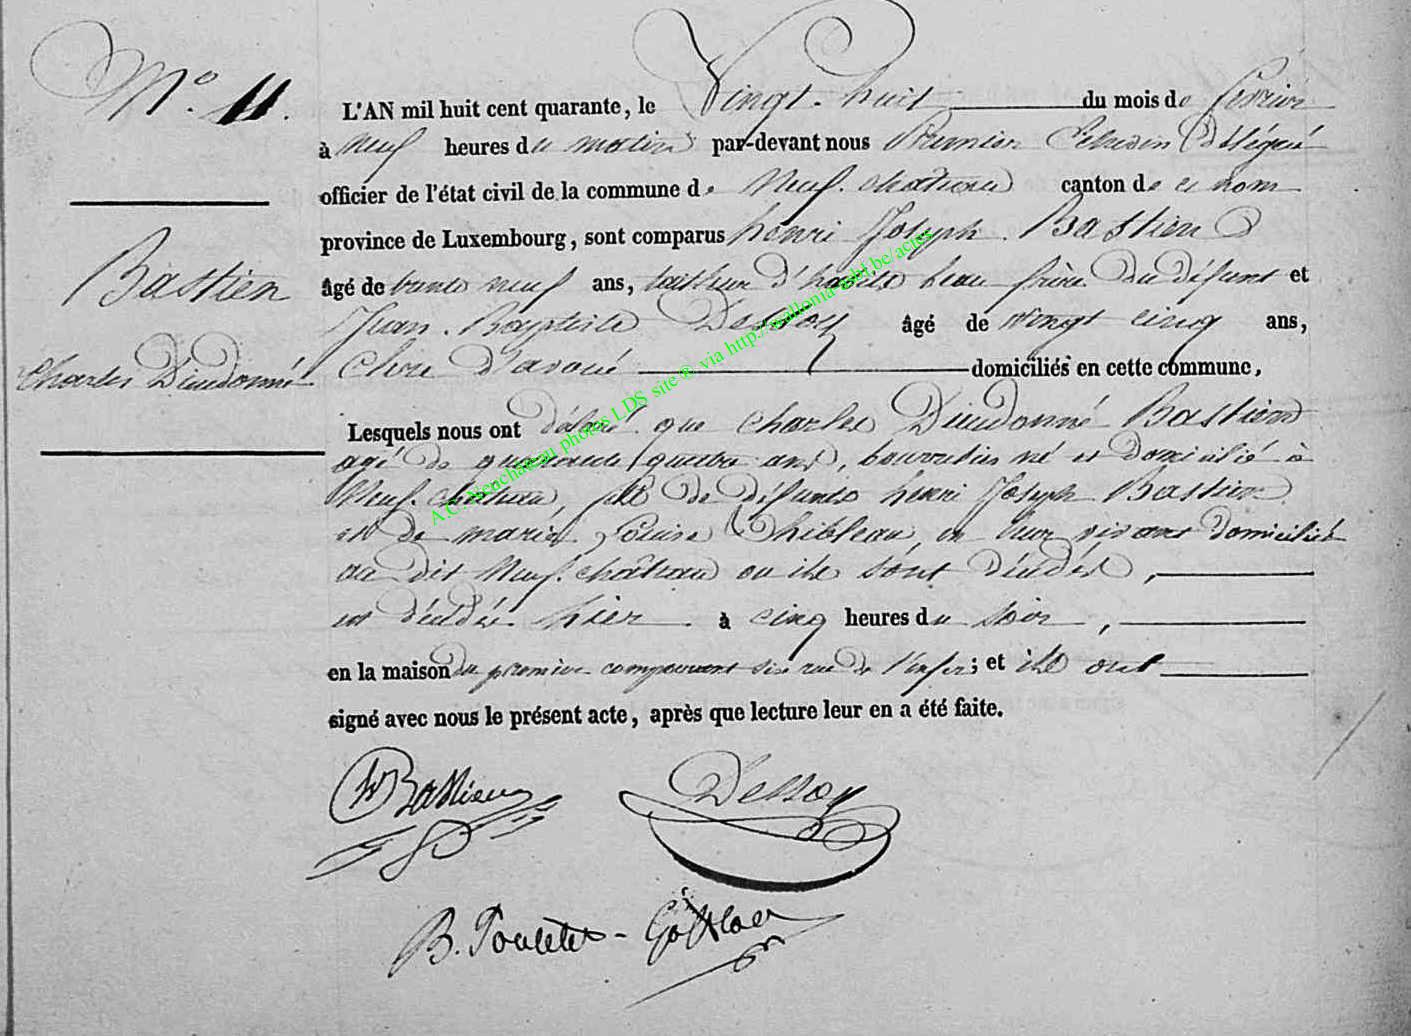 N.º 11.
Bastien
Charles Dieudonné
L'AN mil huit cent quarante, le Vingt-huit du mois de février
à neuf heures du matin par-devant nous Premier Echevin délégué
officier de l'état civil de la commune de Neuf-château canton de ce nom
province de Luxembourg, sont comparus henri Joseph Bastien
âgé de trente neuf ans, tailleur d'habits beau frère du défunt et
Jean-Baptiste Dessoy âgé de vingt cinq ans,
Clerc d'avoué domiciliés en cette commune,
Lesquels nous ont déclaré que Charles Dieudonné Bastien
agé de quarante quatre ans, né et domicilié à
Neuf-château, fils de défunts henri Joseph Bastien
et de marie Louise Thibleau, en leur vivant domiciliés
au dit Neuf-château ou ils sont décédés,
est décédé hier à cinq heures du soir,
en la maison du premier comparant sise rue de l'enfer; et ils ont
signé avec nous le présent acte, après que lecture leur en a été faite.
A.C. Neuchâteau photos LDS site ® via http://wallonia-asbl.be/actes
Bastien
Dessoy
B.